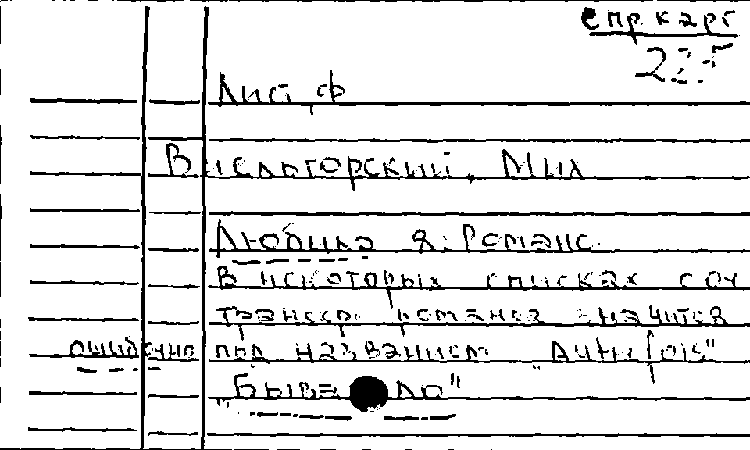 спр карт
225
Лист, Ф
Виельгорский, Мих
Любила я: Романс
В некоторых списках соч
транскр. романса значится
ошибочно под названием "Autrefois"
"Быва ло"